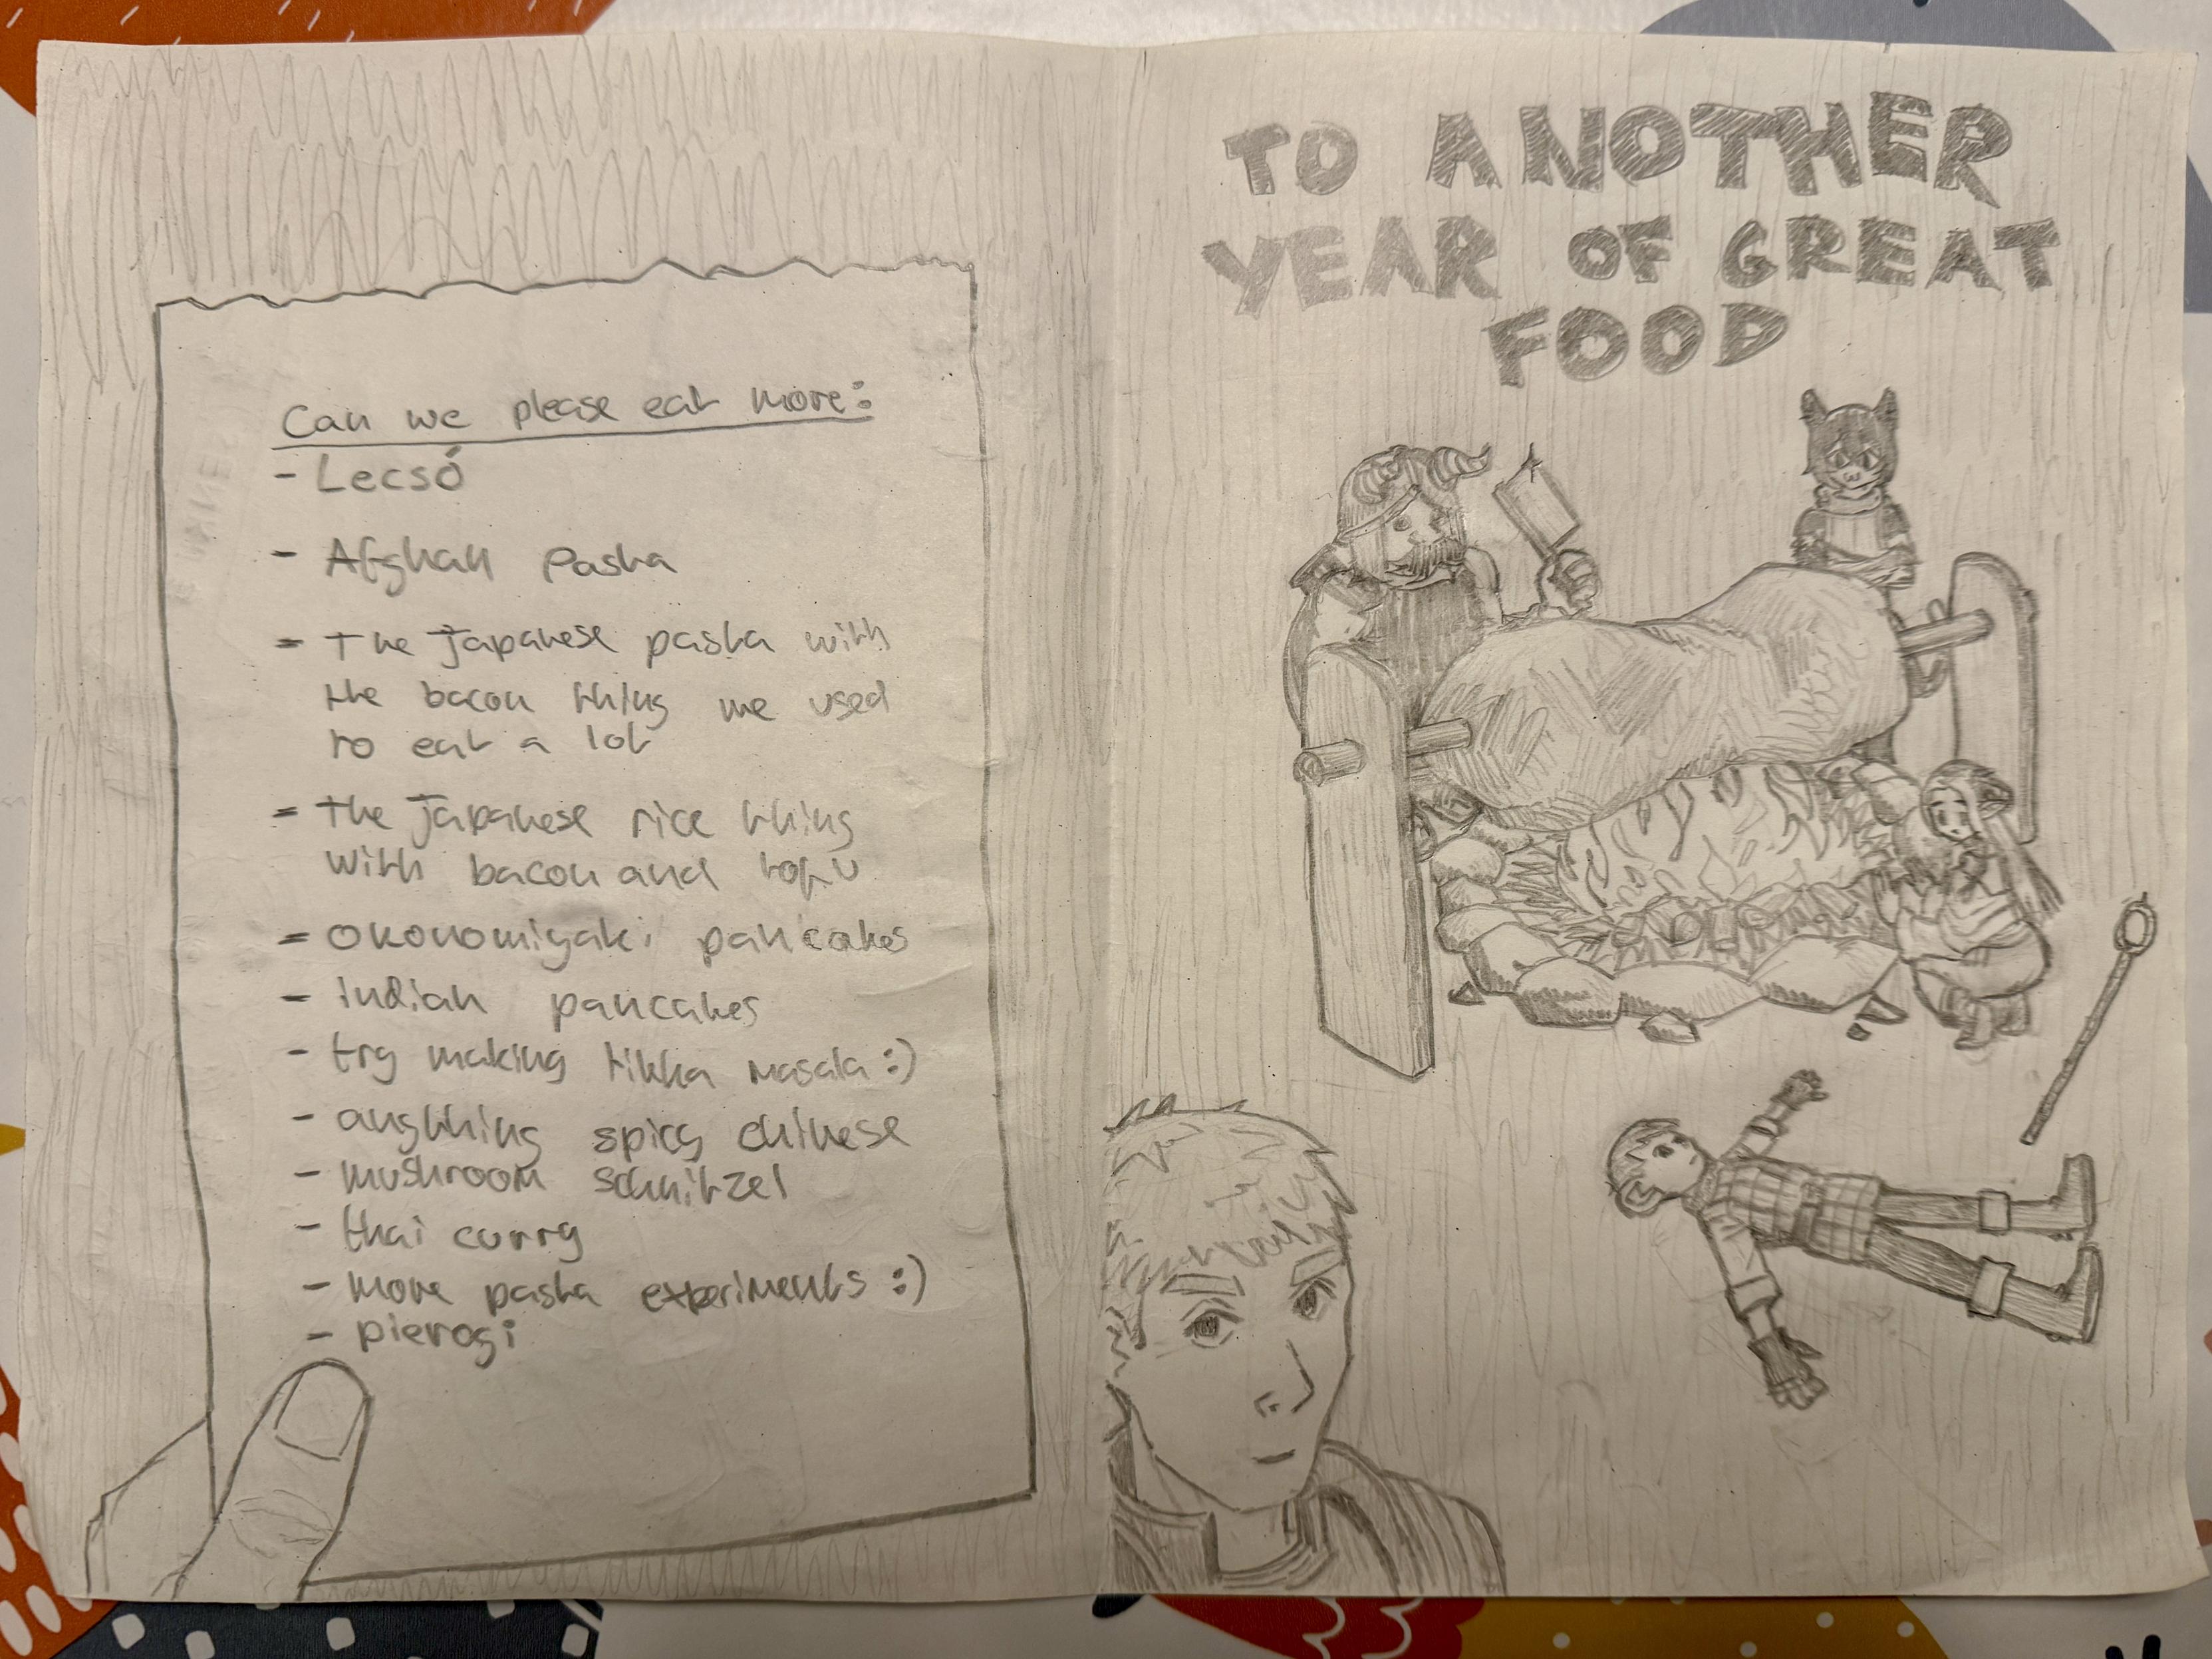 Can we please eat more:
- Lecsó
- Afghan Pasta
- The Japanese pasta with
the bacon thing we used
to eat a lot
- The Japanese rice thing
with bacon and tofu
- okonomiyaki pancakes
- indian pancakes
- try making tikka masala :)
- anything spicy chinese
- mushroom schnitzel
- thai curry
- more pasta experiments :)
- pierogi
TO ANOTHER
YEAR OF GREAT
FOOD